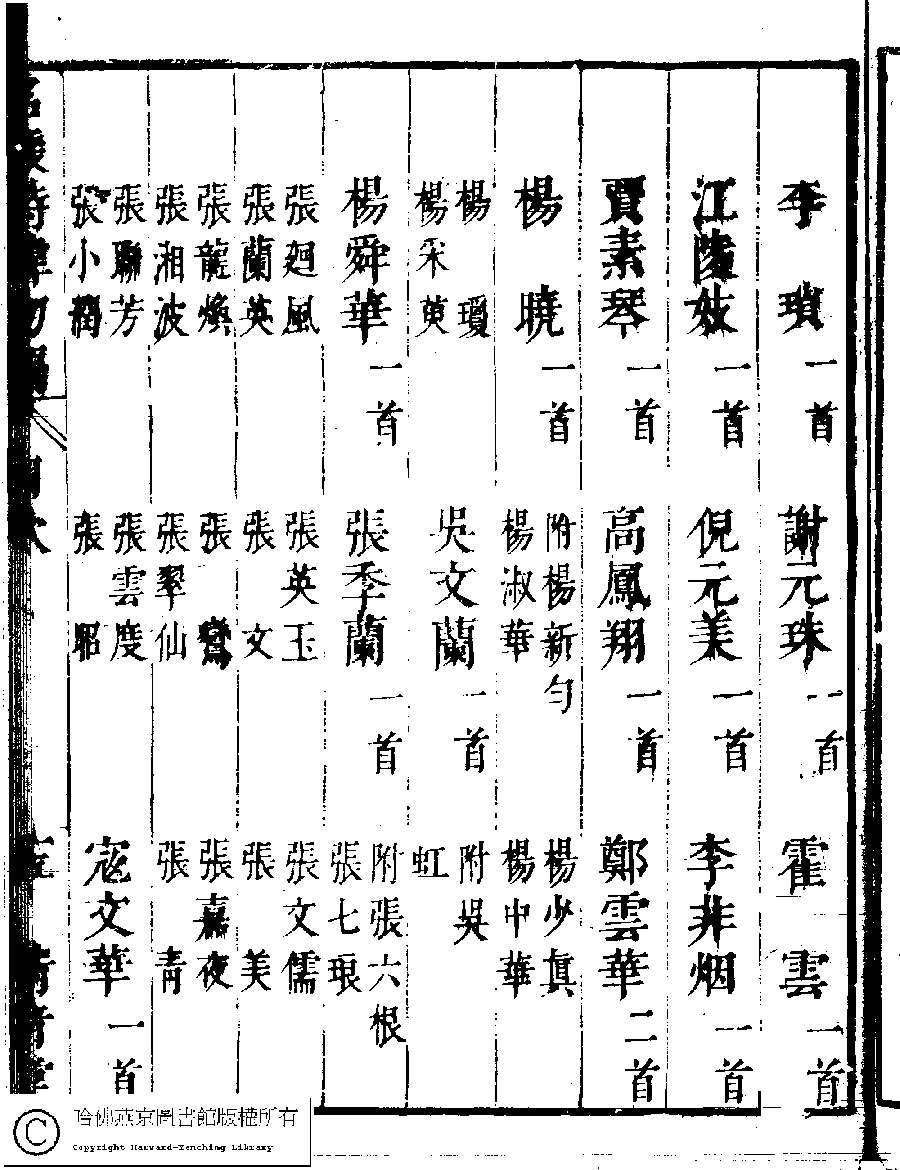 李瑣一首　謝元珠一首　霍雲一首
江陵妓一首　倪元美一首　李非烟一首
賈素琴一首　高鳳翔一首　鄭雲華二首
楊曉一首　附楊新勻　楊淑華　楊少真　楊中華
楊瓊　楊采萸　吳文蘭一首　附吳虹
楊舜華一首　張季蘭一首　附張六根　張七琅
張廻風　張英玉　張文儒
張蘭英　張文　張美
張龍煥　張鸞　張嘉夜
張湘波　張翠仙　張青
張聯芳　張雲度　寇文華一首
張小潤　張
名媛詩緯初編　目次
哈佛燕京圖書館版權所有
Copyright Harvard-Yenching Library